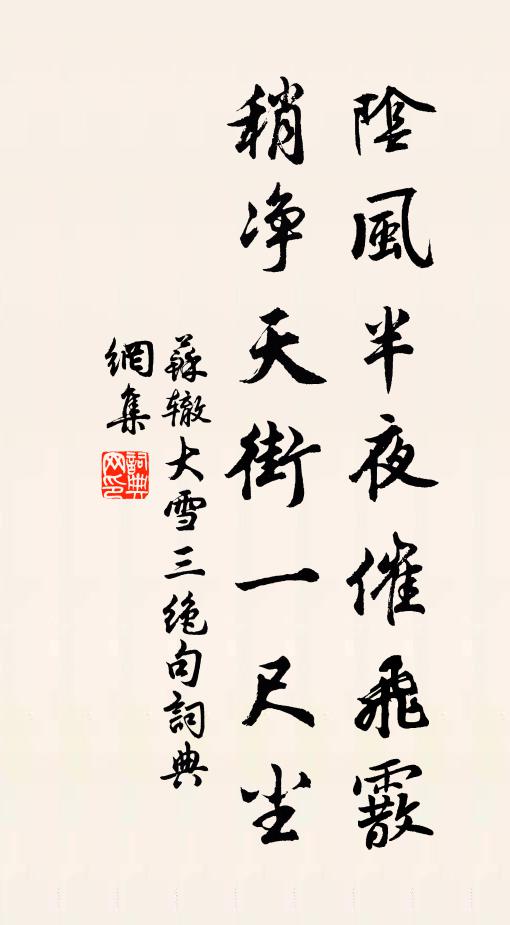 陰風半夜催飛霰
稍净天街一尺尘
蘇辙大雪三绝句詞典
網集
詞典
网印